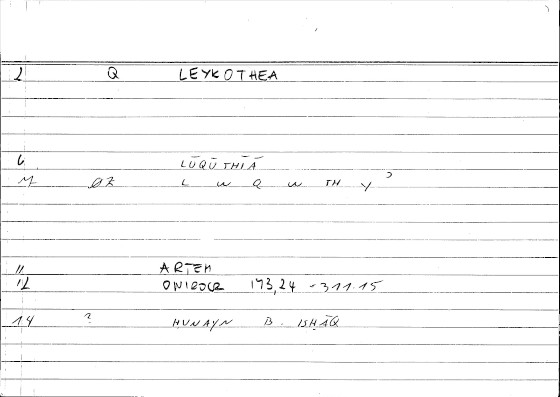 2 Q LEYKOTHEA
6 LŪQŪTHĪĀ
M ØZ L W Q W TH Y ʾ
11 ARTEM
12 ONIROCR 173,24 - 311.15
14 ? HUNAYN B. ISḤĀQ